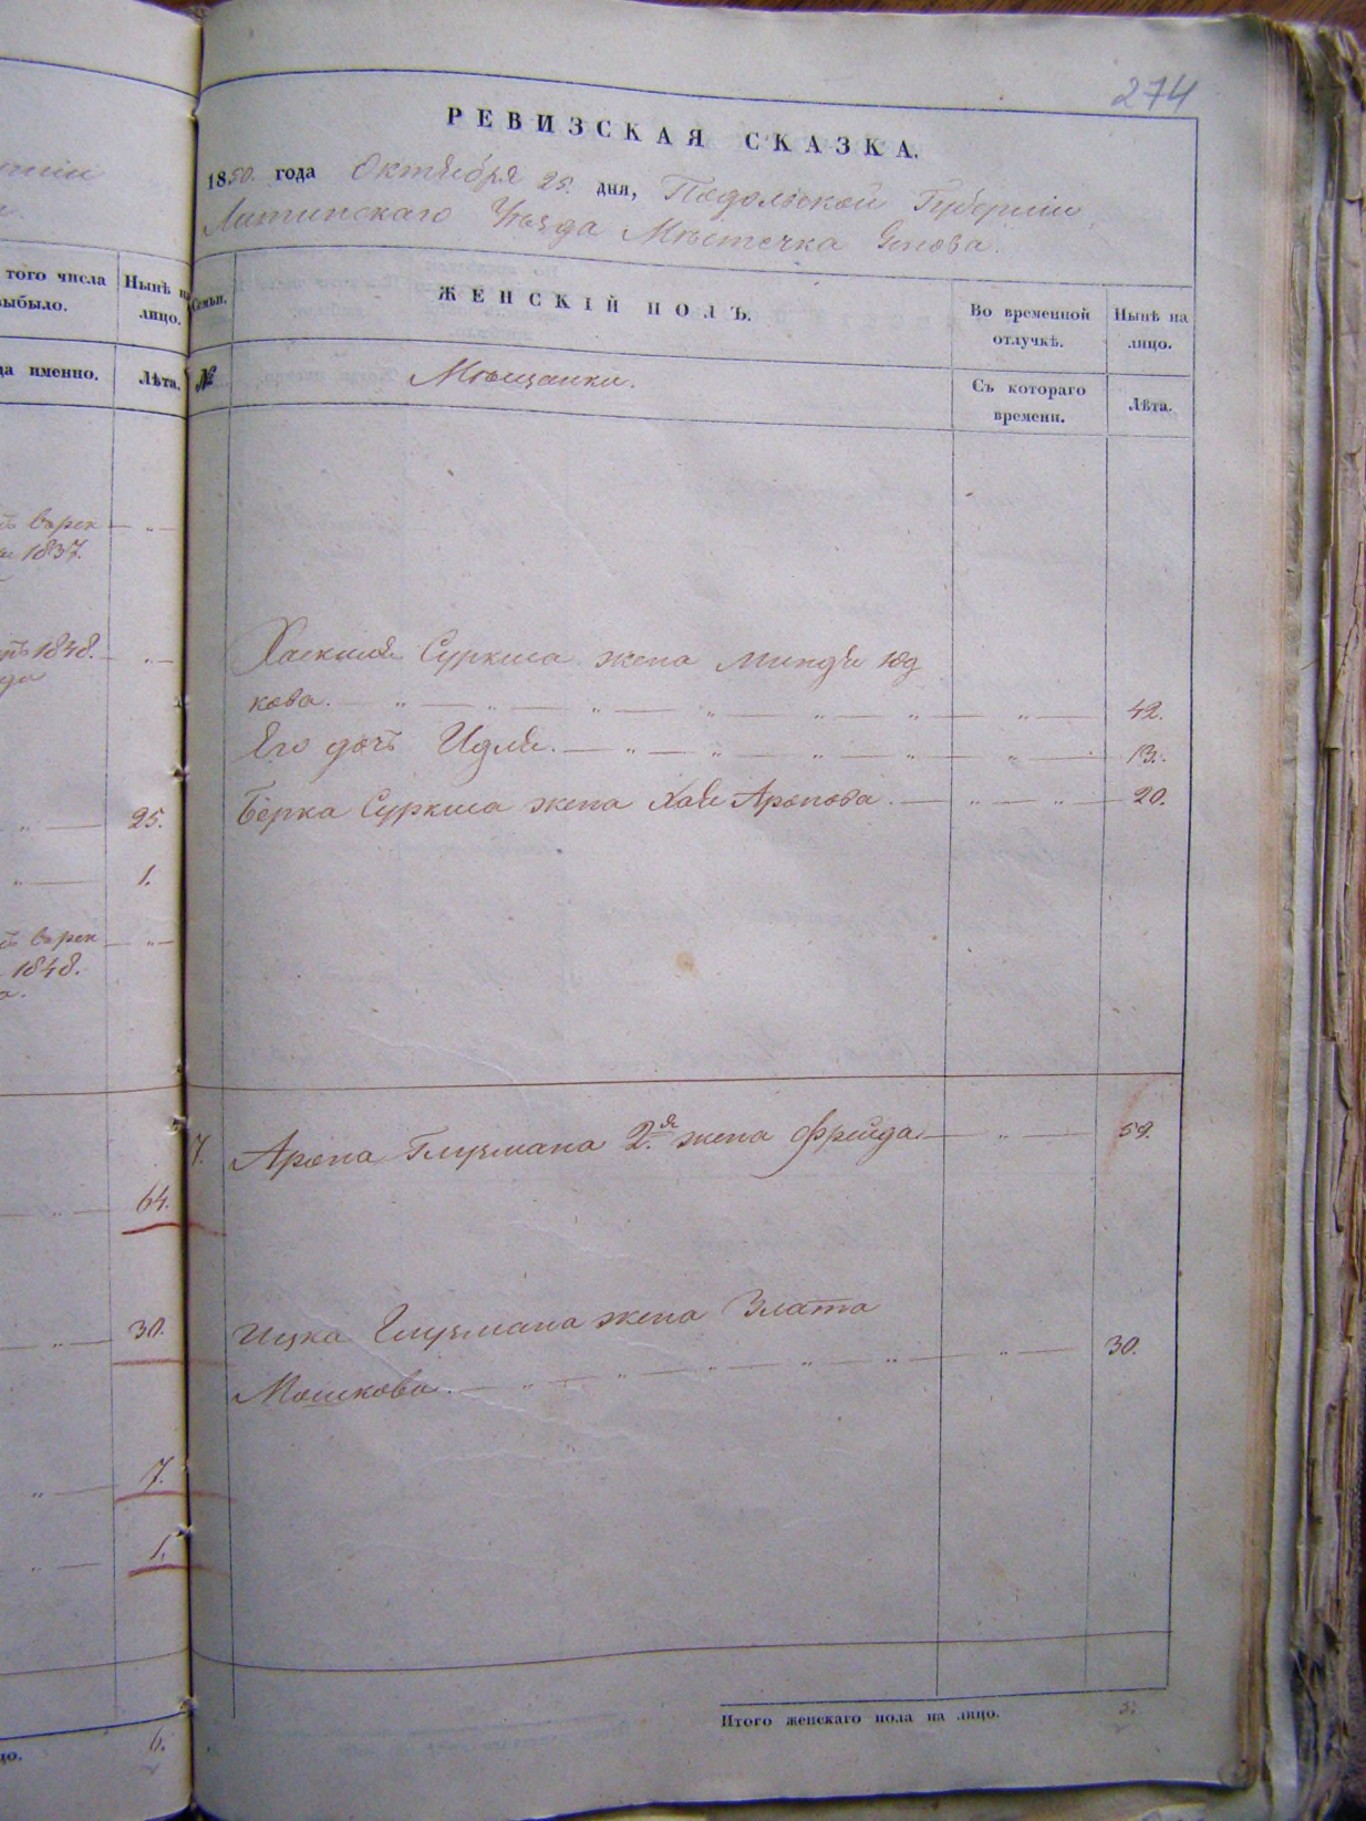 274
РЕВИЗСКАЯ СКАЗКА.
1850. года Октября 25. дня, Подольской Губерніи
Литинскаго Уѣзда Мѣстечка
того числа
выбыло.
Нынѣ на
лицо.
да именно.
Лѣта.
1837.
1848.
25.
1.
1848.
64.
30.
7.
1.
6.
Семьи.
ЖЕНСКІЙ ПОЛЪ.
Во временной
отлучкѣ.
Нынѣ на
лицо.
№
Мѣщанки.
Съ котораго
времени.
Лѣта.
Суркиса жена Миндя Юд
кова. 42.
Его дочь Идля. 13.
Берка Суркиса жена Хая Аронова. 20.
7. Арона Глузмана 2.я жена Фрейда 59.
Ицка Глузмана жена Злата
Мошкова. 30.
Итого женскаго пола на лицо. 5.